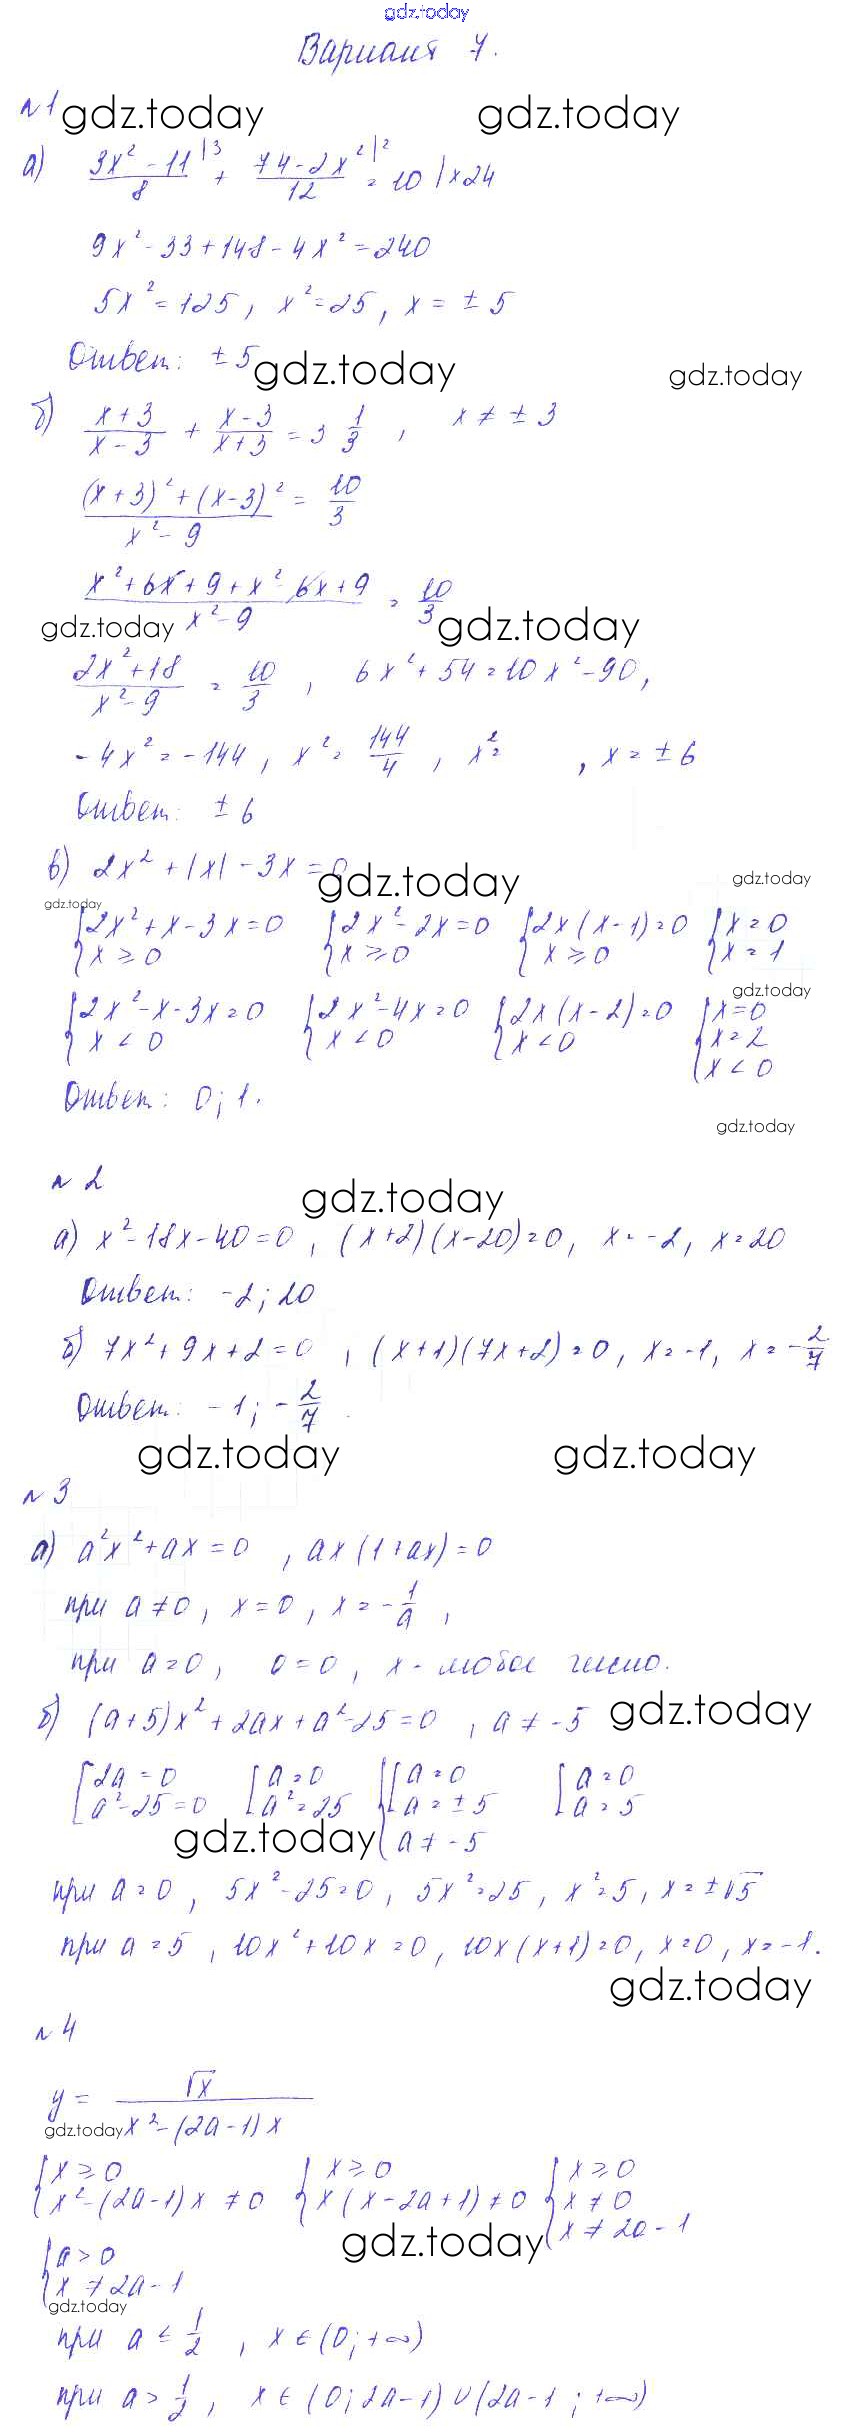 gdz.today
Вариант 7.
№1 gdz.today gdz.today
а) (3x² - 11)/8 |³ + (74 - 2x²)/12 |² = 10 | × 24
9x² - 33 + 148 - 4x² = 240
5x² = 125, x² = 25, x = ± 5
Ответ: ± 5
gdz.today gdz.today
б) (x + 3)/(x - 3) + (x - 3)/(x + 3) = 3 1/3, x ≠ ± 3
((x + 3)² + (x - 3)²)/(x² - 9) = 10/3
(x² + 6x + 9 + x² - 6x + 9)/(x² - 9) = 10/3
gdz.today gdz.today
(2x² + 18)/(x² - 9) = 10/3, 6x² + 54 = 10x² - 90,
- 4x² = - 144, x² = 144/4, x² = , x = ± 6
Ответ: ± 6
в) 2x² + |x| - 3x = 0
gdz.today gdz.today
gdz.today
{2x² + x - 3x = 0 {2x² - 2x = 0 {2x(x - 1) = 0 {x = 0
{x ≥ 0 {x ≥ 0 {x ≥ 0 {x = 1
gdz.today
{2x² - x - 3x = 0 {2x² - 4x = 0 {2x(x - 2) = 0 {x = 0
{x < 0 {x < 0 {x < 0 {x = 2
{x < 0
Ответ: 0; 1.
gdz.today
№ 2
gdz.today
а) x² - 18x - 40 = 0, (x + 2)(x - 20) = 0, x = -2, x = 20
Ответ: -2; 20
б) 7x² + 9x + 2 = 0, (x + 1)(7x + 2) = 0, x = -1, x = - 2/7
Ответ: - 1; - 2/7
gdz.today gdz.today
№ 3
а) a²x² + ax = 0, ax(1 + ax) = 0
при a ≠ 0, x = 0, x = - 1/a,
при a = 0, 0 = 0, x - любое число.
б) (a + 5)x² + 2ax + a² - 25 = 0, a ≠ - 5 gdz.today
[2a = 0 [a = 0 {[a = 0 [a = 0
[a² - 25 = 0 [a² = 25 {[a = ± 5 [a = 5
gdz.today {a ≠ - 5
при a = 0, 5x² - 25 = 0, 5x² = 25, x² = 5, x = ± √5
при a = 5, 10x² + 10x = 0, 10x(x + 1) = 0, x = 0, x = - 1.
gdz.today
№ 4
y = √x/(x² - (2a - 1)x)
gdz.today
{x ≥ 0 {x ≥ 0 {x ≥ 0
{x² - (2a - 1)x ≠ 0 {x(x - 2a + 1) ≠ 0 {x ≠ 0
{x ≠ 2a - 1
gdz.today
{a > 0
{x ≠ 2a - 1
gdz.today
при a ≤ 1/2, x ∈ (0; +∞)
при a > 1/2, x ∈ (0; 2a - 1) ∪ (2a - 1; +∞)